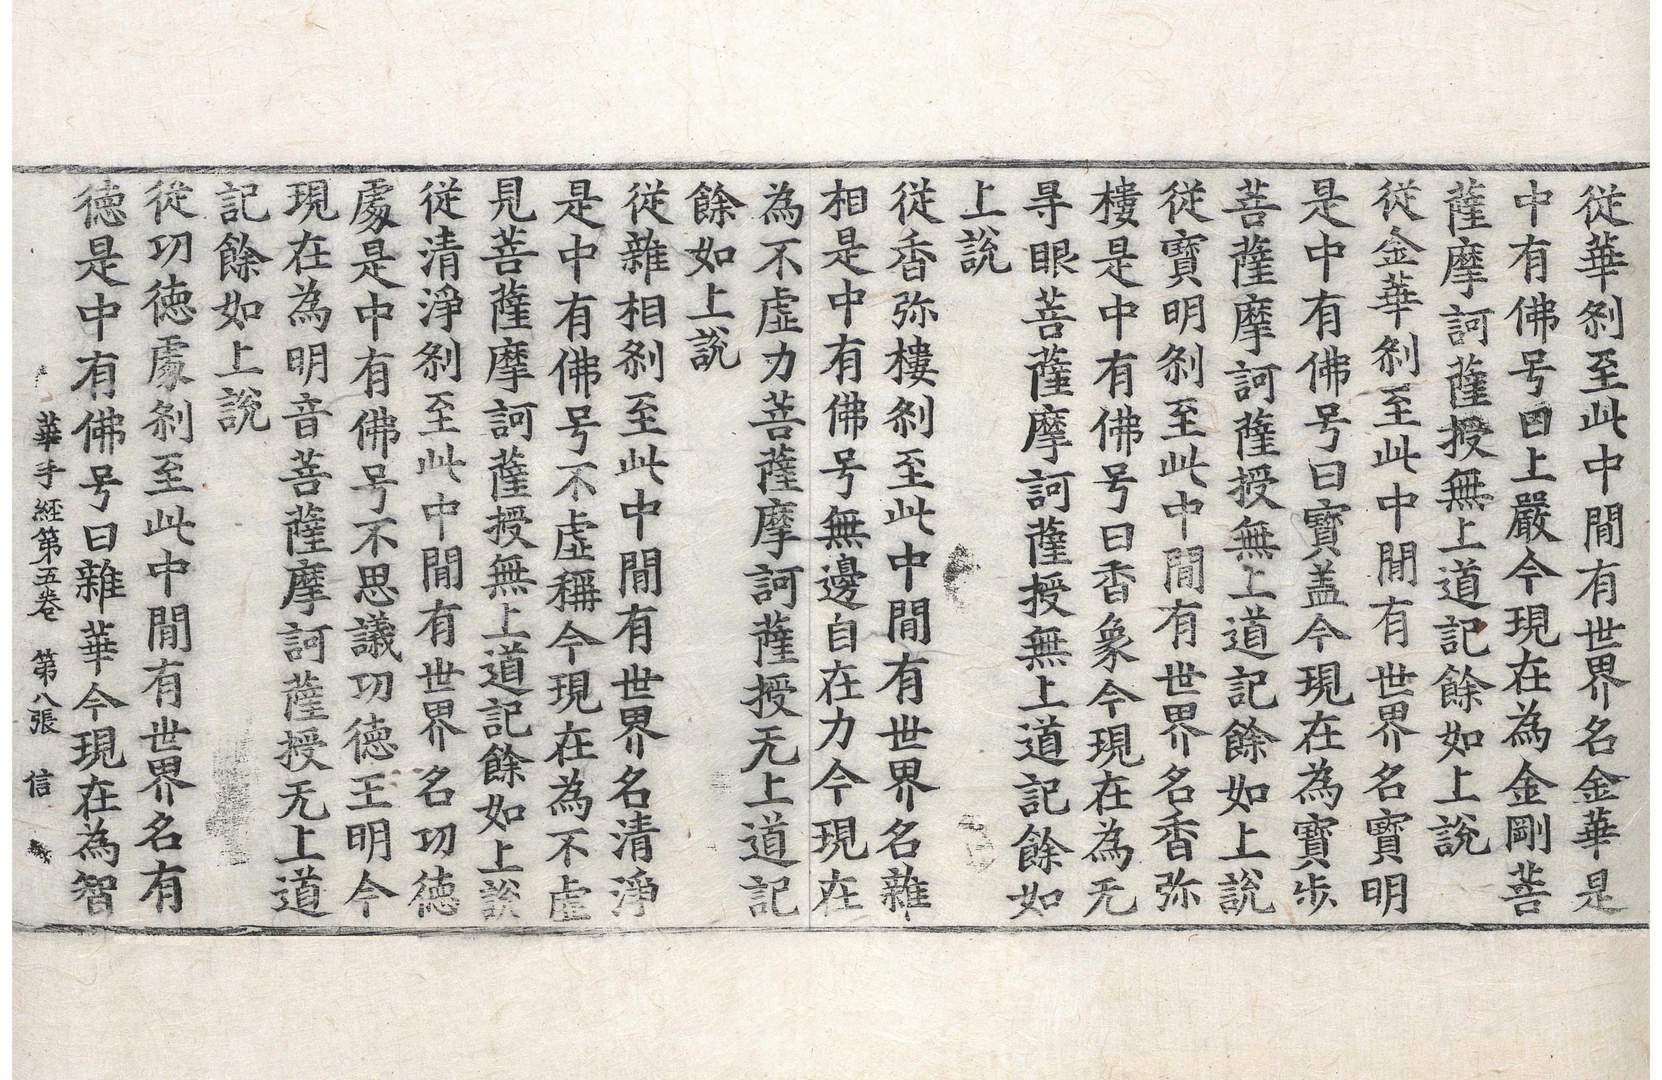 從華刹至此中閒有世界名金華是
中有佛号曰上嚴今現在為金剛菩
薩摩訶薩授無上道記餘如上說
從金華刹至此中閒有世界名寶明
是中有佛号曰寶盖今現在為寶步
菩薩摩訶薩授無上道記餘如上說
從寶明刹至此中閒有世界名香弥
樓是中有佛号曰香象今現在為无
㝵眼菩薩摩訶薩授無上道記餘如
上說
從香弥樓刹至此中閒有世界名雜
相是中有佛号無邊自在力今現在
為不虛力菩薩摩訶薩授无上道記
餘如上說
從雜相刹至此中閒有世界名清淨
是中有佛号不虛稱今現在為不虛
見菩薩摩訶薩授無上道記餘如上說
從清淨刹至此中閒有世界名功德
處是中有佛号不思議功德王明今
現在為明音菩薩摩訶薩授无上道
記餘如上說
從功德處刹至此中閒有世界名有
德是中有佛号曰雜華今現在為智
華手經第五卷 第八張 信